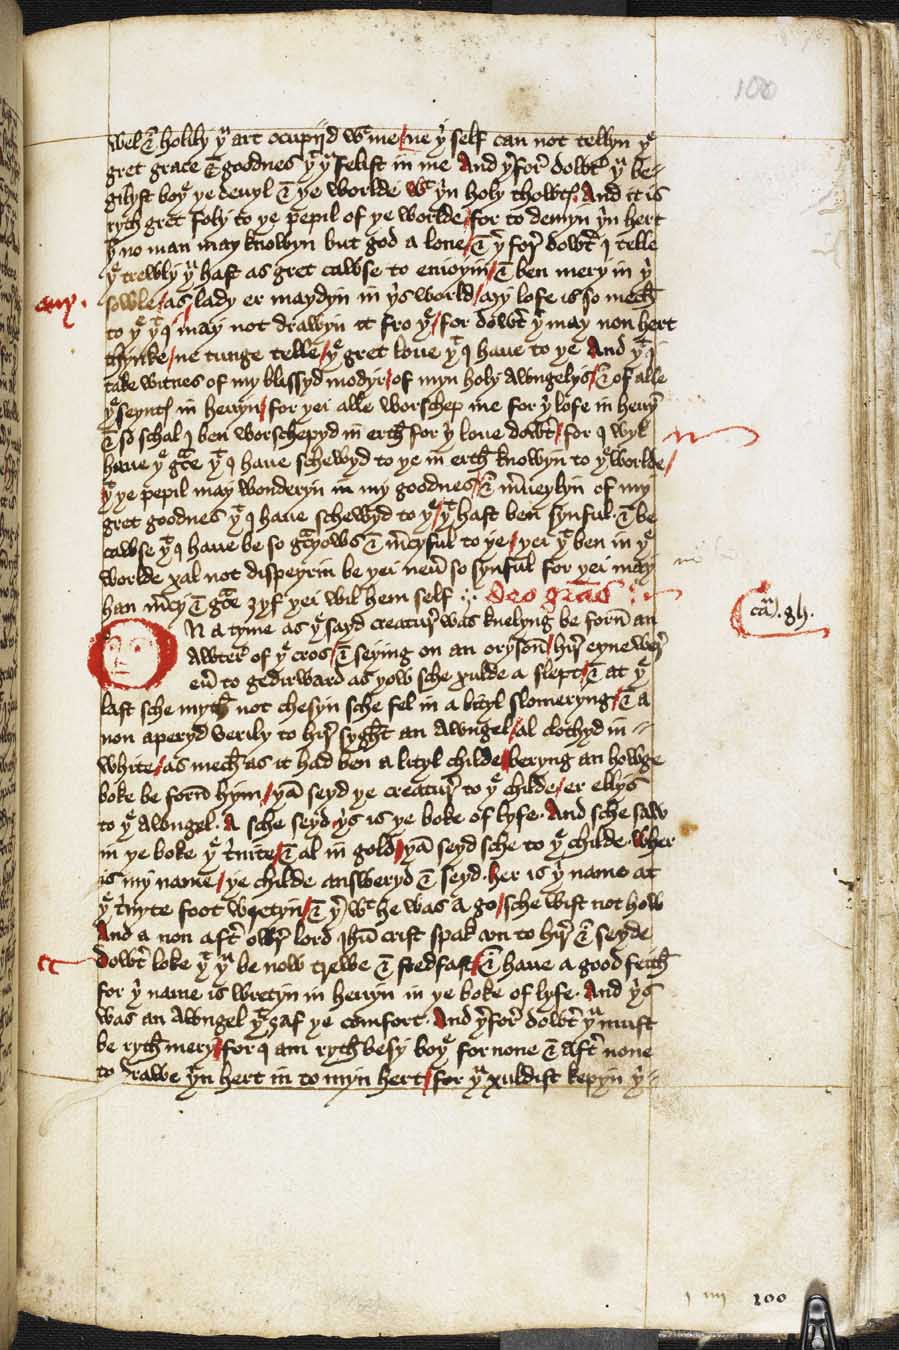 100
wel & holily yu art ocupijd wt me / ne yi self can not tellyn ye
gret grace & goodnes yt yu felist in me And yerfor dowtyr yu be=
gilyst boye ye deuyl & ye worlde wt yin holy thowtys And it is
rygth gret foly to ye pepil of ye worlde / for to demyn yin hert
yt no man may knowyn but god a lone / & yerfor dowtyr I telle
ye trewly yu hast as gret cawse to enioyin / & ben mery in yi
amen.
sowle / as lady er maydyn in yis world / my lofe is so mech
to ye yt I may not drawyn it fro ye / for dowtyr yer may non hert
thynke / ne tunge telle / ye gret loue yt I haue to ye And yt I
take witnes of my blissyd modyr / of myn holy Awngelys / & of alle
ye seynts in heuyn / for yei alle worschep me for yi lofe in heuyn
& so schal I ben worschepyd in erth for yi loue dowtyr / for I wyl
haue ye gce yt I haue schewyd to ye in erth knowyn to ye worlde /
yt ye pepil may wonderyn in my goodnes / & mueylyn of my
gret goodnes yt I haue schewyd to ye / yt hast ben synful & be
cawse yt I haue be so gcyows & mcyful to ye / yei yt ben in ye
worlde xal not dispeyrin be yei neur so synful for yei may
han mcy & gce ȝyf yei wil hem self ∴ deo gras ∴
ca. 85.
On a tyme as ye sayd creatur was knelyng be forn an
Awter of ye cros / & seying on an oryson / hir eyne wer
eur to gedirward as yow sche xulde a slept / & at ye
last sche myth not chesyn sche fel in a lityl slomeryng / & a
non aperyd verily to hir syght an awngel / al clothyd in =
white / as mech as it had ben a lityl childe beryng an howge
boke be forn hym / yan seyd ye creatur to ye childe / er ellys
to ye Awngel. A sche seyd yis is ye boke of lyfe. And sche saw
in ye boke ye trinite / & al in gold / yan seyd sche to ye childe wher
is my name / ye childe answeryd & seyd her is yi name at
ye trinyte foot wretyn / & yer wt he was a go / sche wist not how
And a non aftyr owr lord Ihu crist spak vn to hir & seyde
dowtyr loke yt yu be now trewe & stedfast / & haue a good feith
for yi name is wretyn in heuyn in ye boke of lyfe. And yis
was an Awngel yt ȝaf ye comfort. And yerfor dowtyr yu must
be ryth mery / for I am ryth besy boye fornone & aftyr none
to drawe yin hert in to myn hert / for yu xuldist kepyn yi=
100